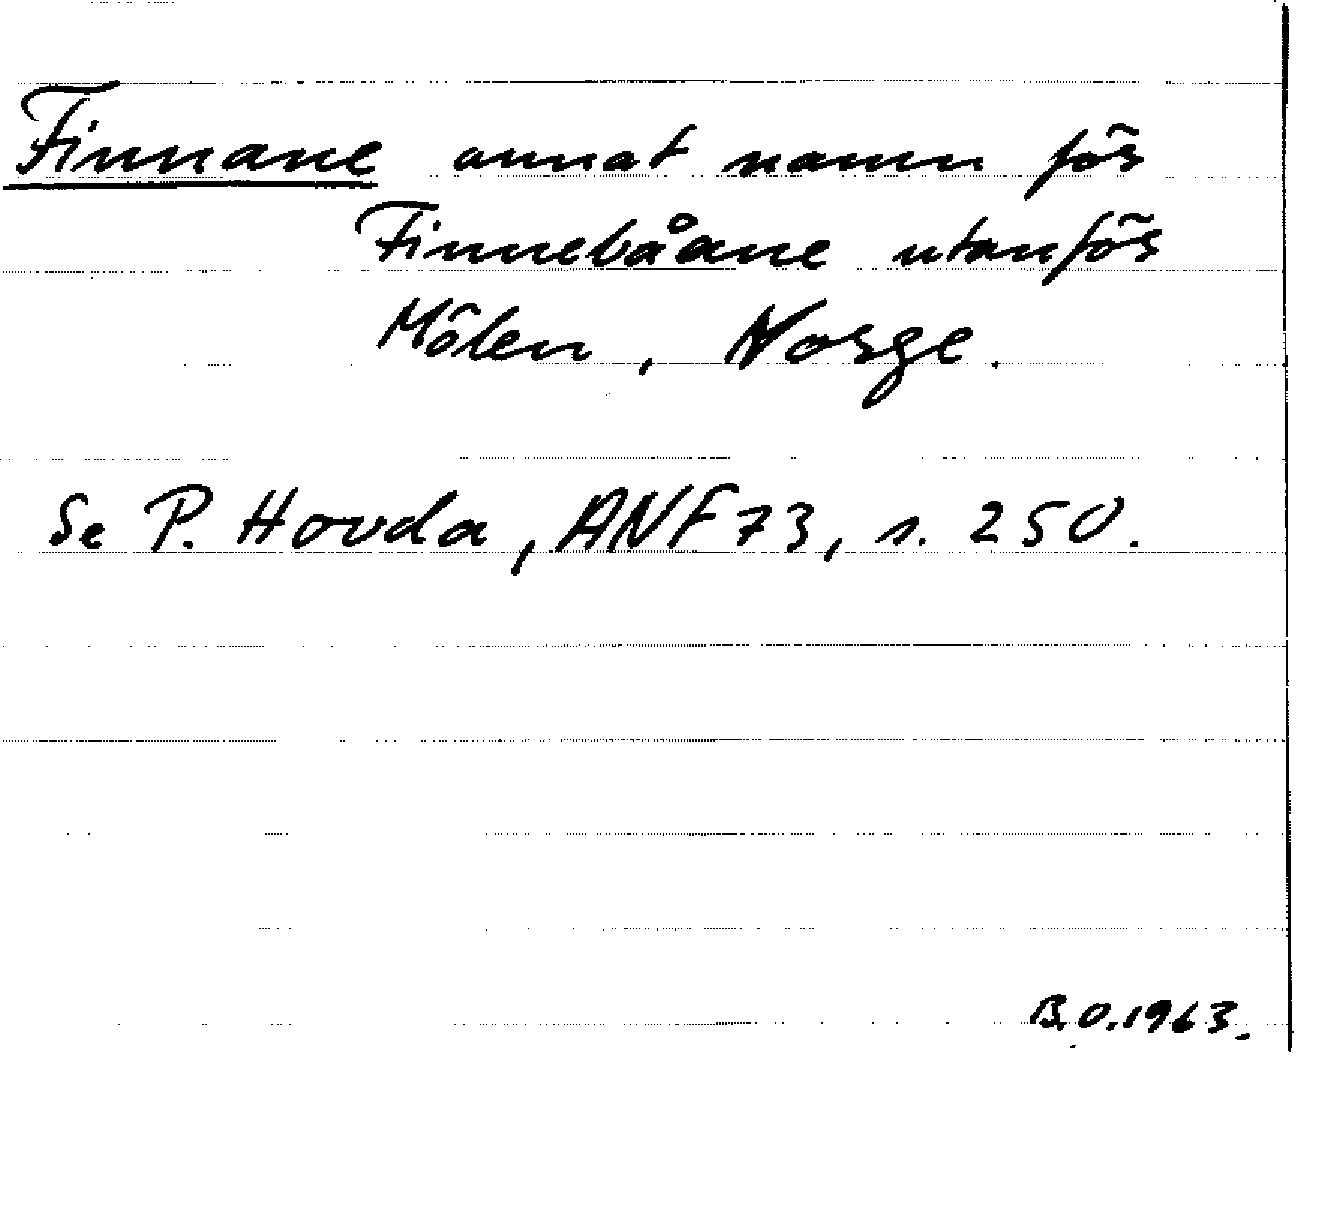 Finnane annat namn för
Finnebåane utanför
Mölen, Norge.
Se P. Hovda, ANF 73, s. 250.
B.O.1963.